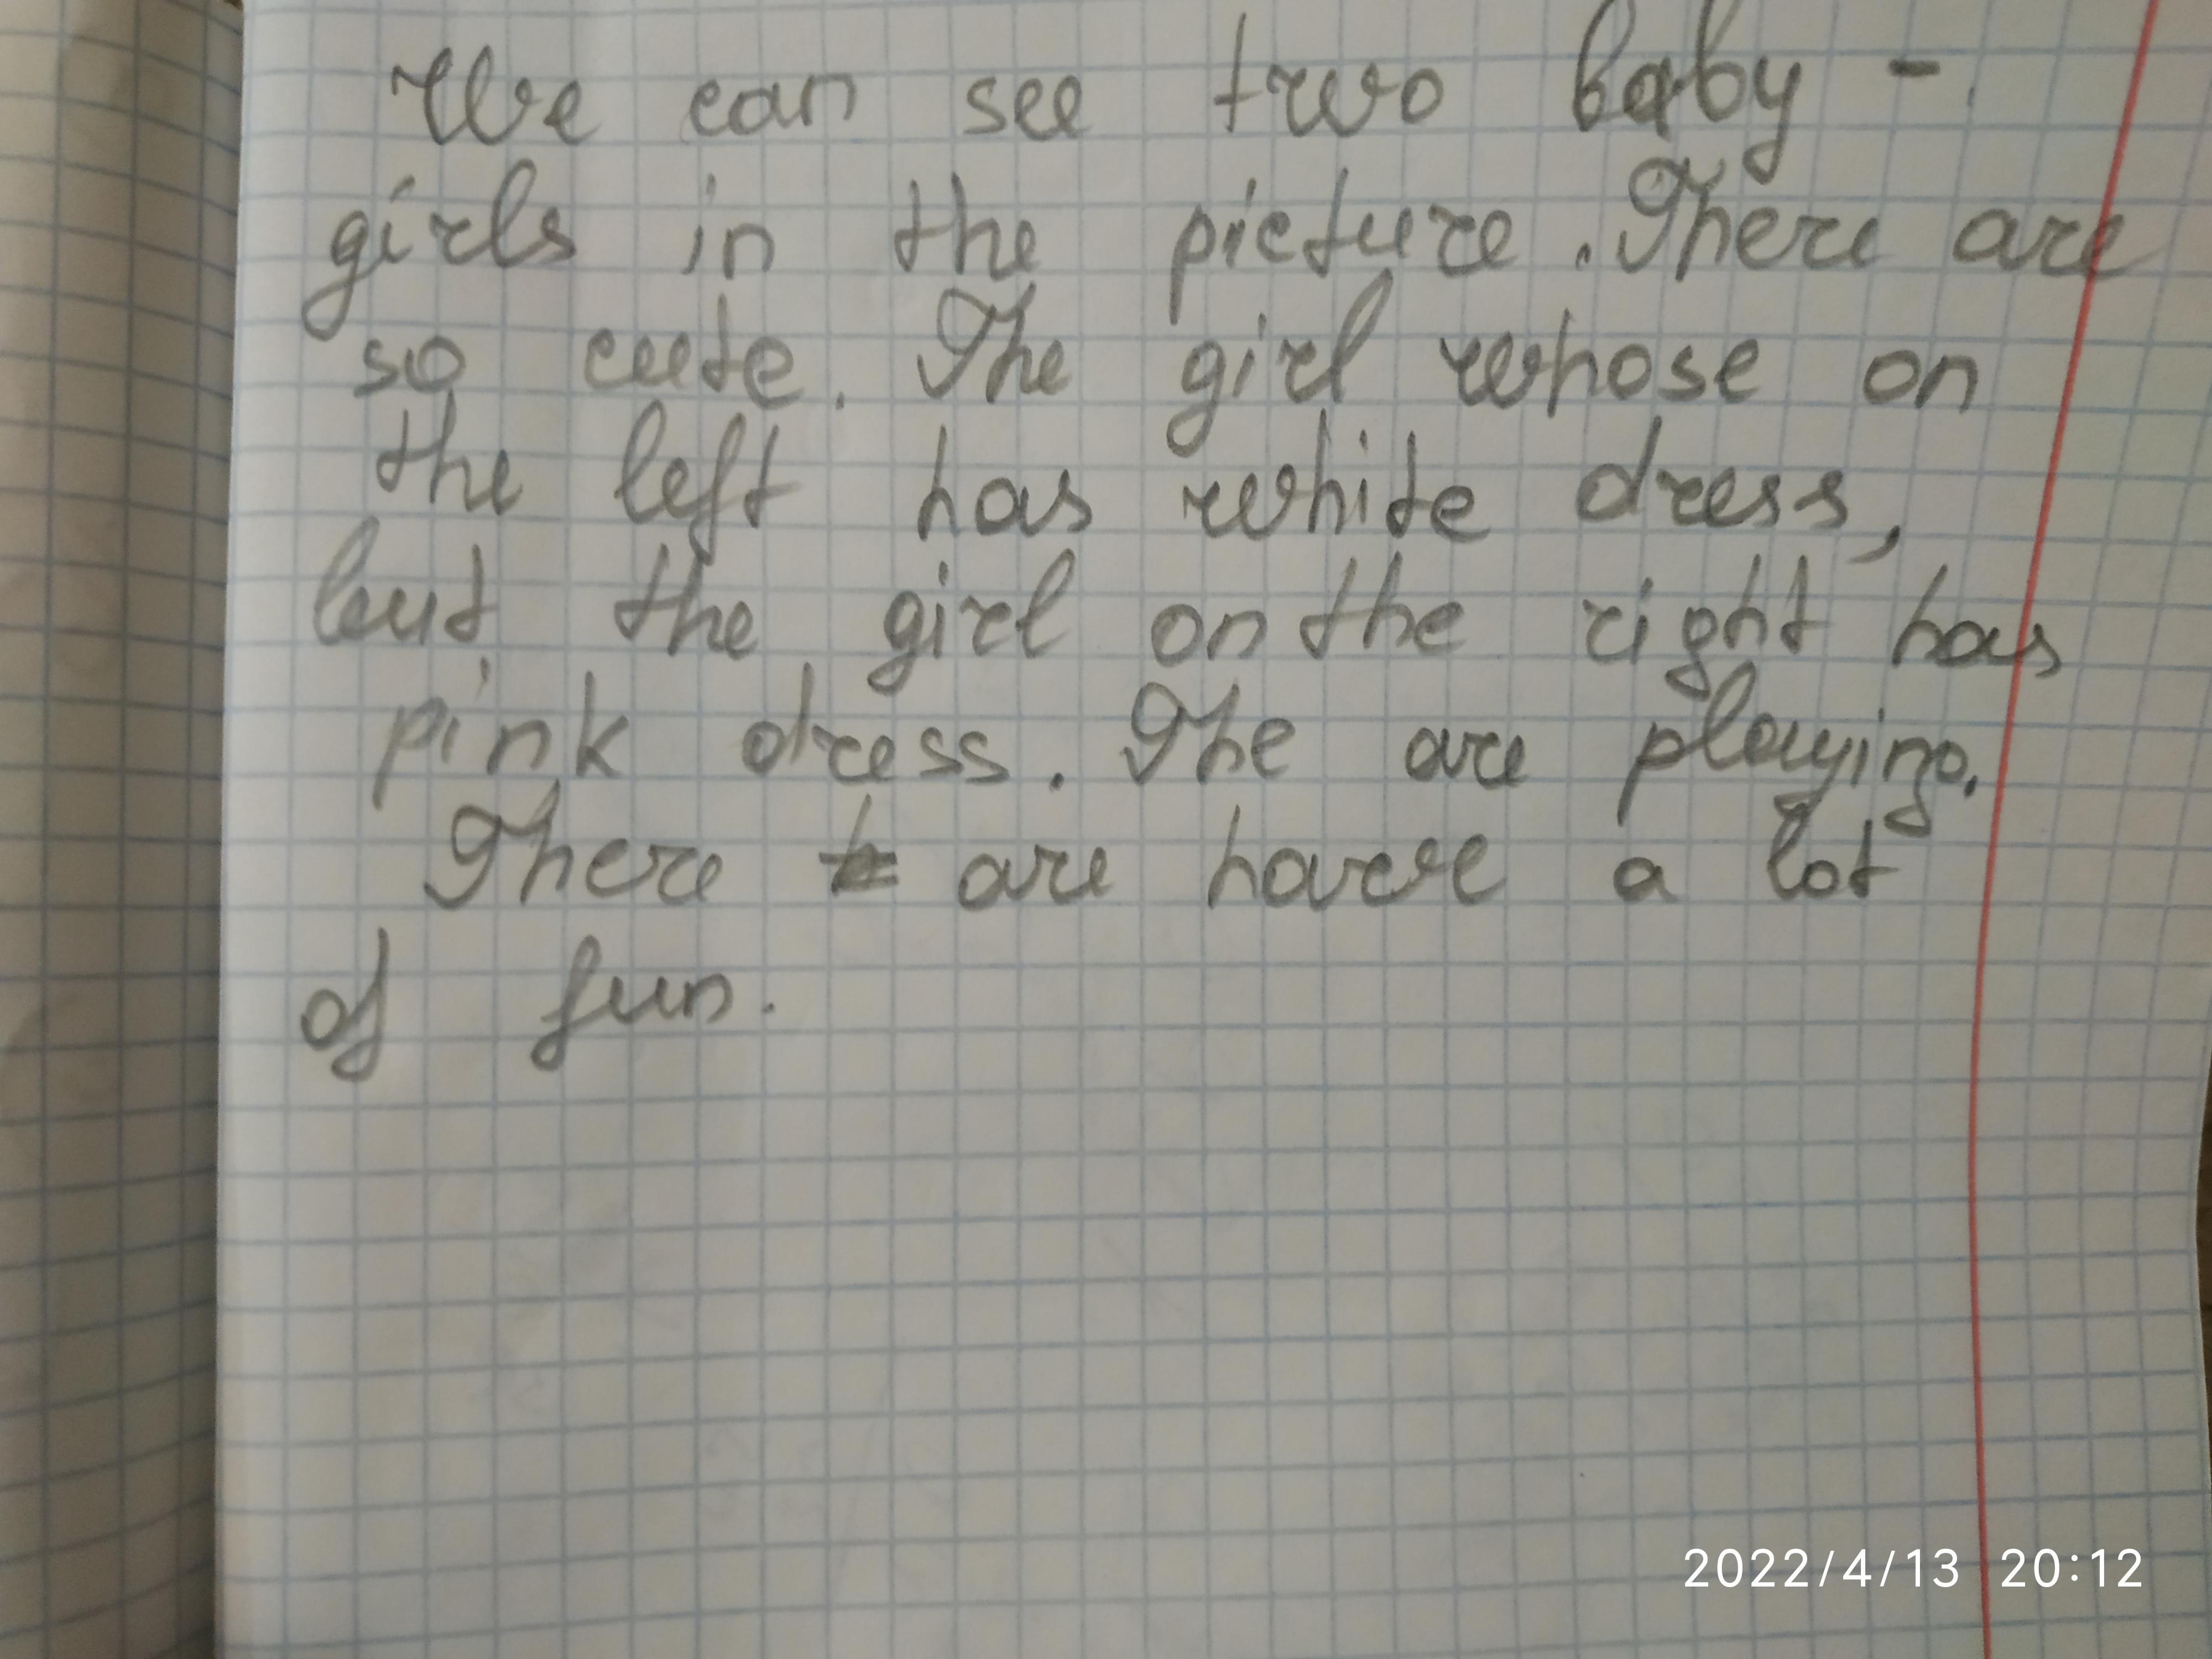 We can see two baby -
girls in the picture. There are
so cute. The girl whose on
the left has white dress,
but the girl on the right has
pink dress. The are playing.
There are have a lot
of fun.
2022/4/13 20:12